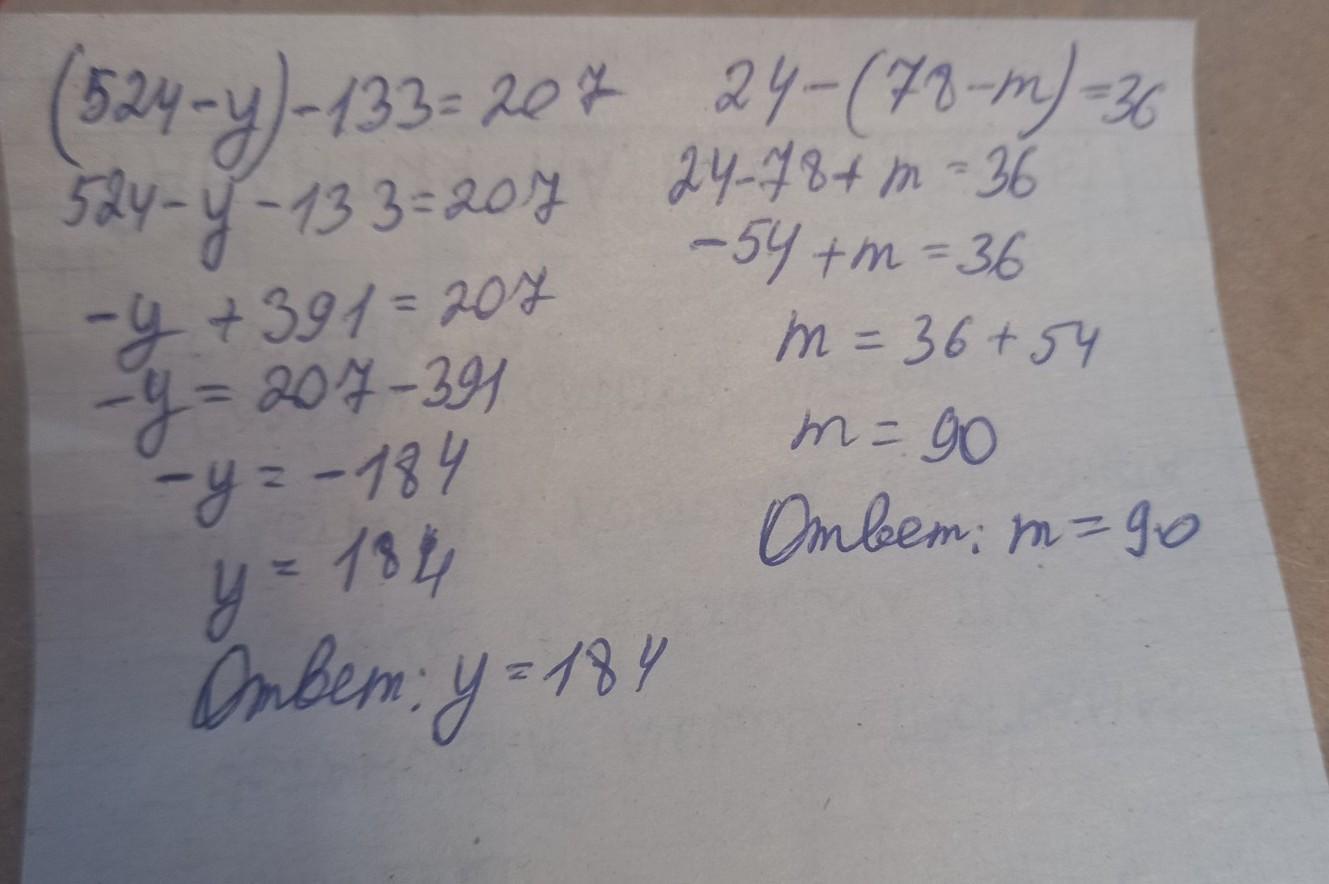 (524-y)-133=207
524-y-133=207
-y+391=207
-y=207-391
-y=-184
y=184
Ответ: y=184
24-(78-m)=36
24-78+m=36
-54+m=36
m=36+54
m=90
Ответ: m=90